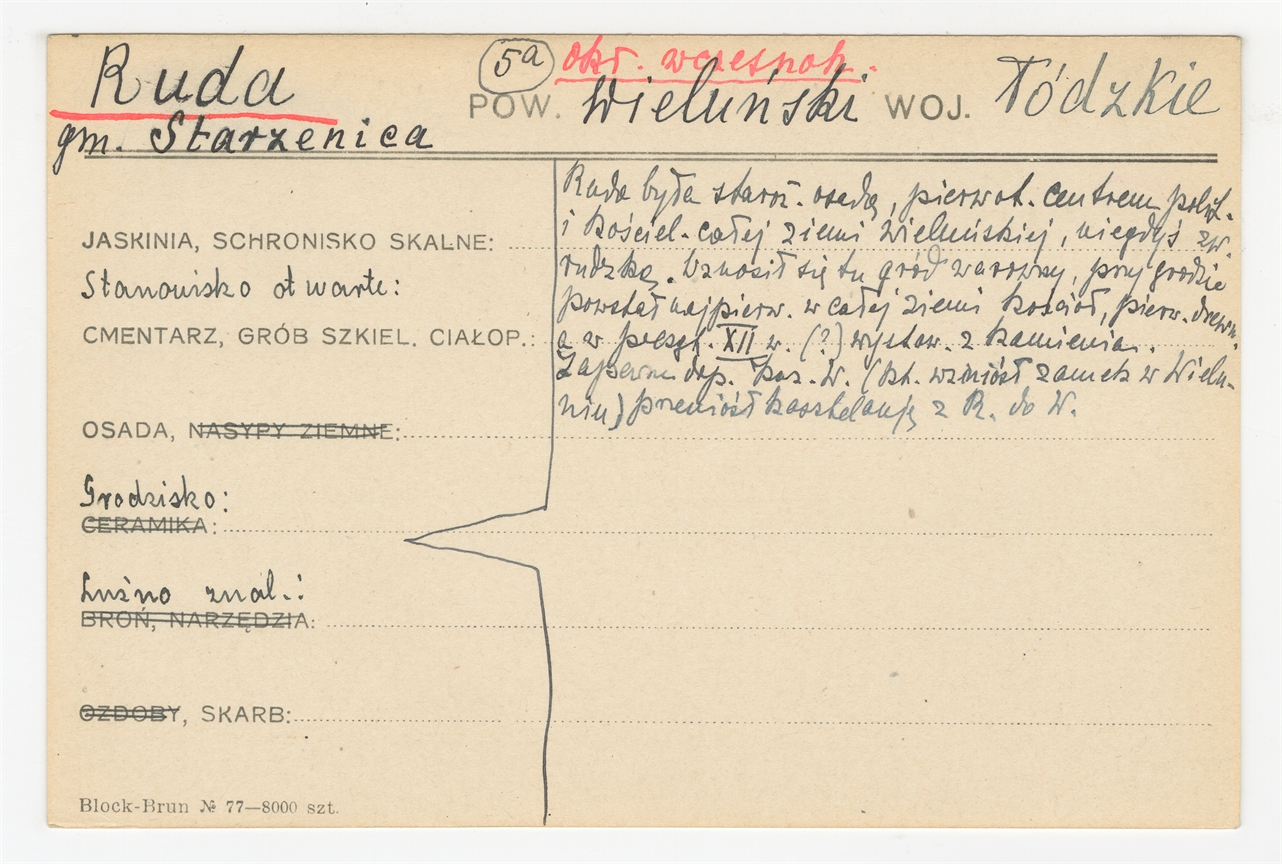 Ruda
5a okr. wczesnoh.
POW. Wieluński WOJ. Łódzkie
gm. Starzenica
Ruda była staroż. osadą, pierwot. centrem polit.
i kościel. całej ziemi wieluńskiej, niegdyś zw.
rudzką. Wznosił się tu gród warowny, przy grodzie
powstał najpierw. w całej ziemi kościół, pierw. drewn.
a w początk. XII w. (?) wystaw. z kamienia.
Zapewne dop. Kaz. W. (kt. wzniósł zamek w Wielu-
niu) przeniósł kasztelanję z R. do W.
JASKINIA, SCHRONISKO SKALNE:
Stanowisko otwarte:
CMENTARZ, GRÓB SZKIEL. CIAŁOP.:
OSADA, NASYPY ZIEMNE:
Grodzisko:
CERAMIKA:
Luźno znal.:
BROŃ, NARZĘDZIA:
OZDOBY, SKARB:
Block-Brun № 77—8000 szt.